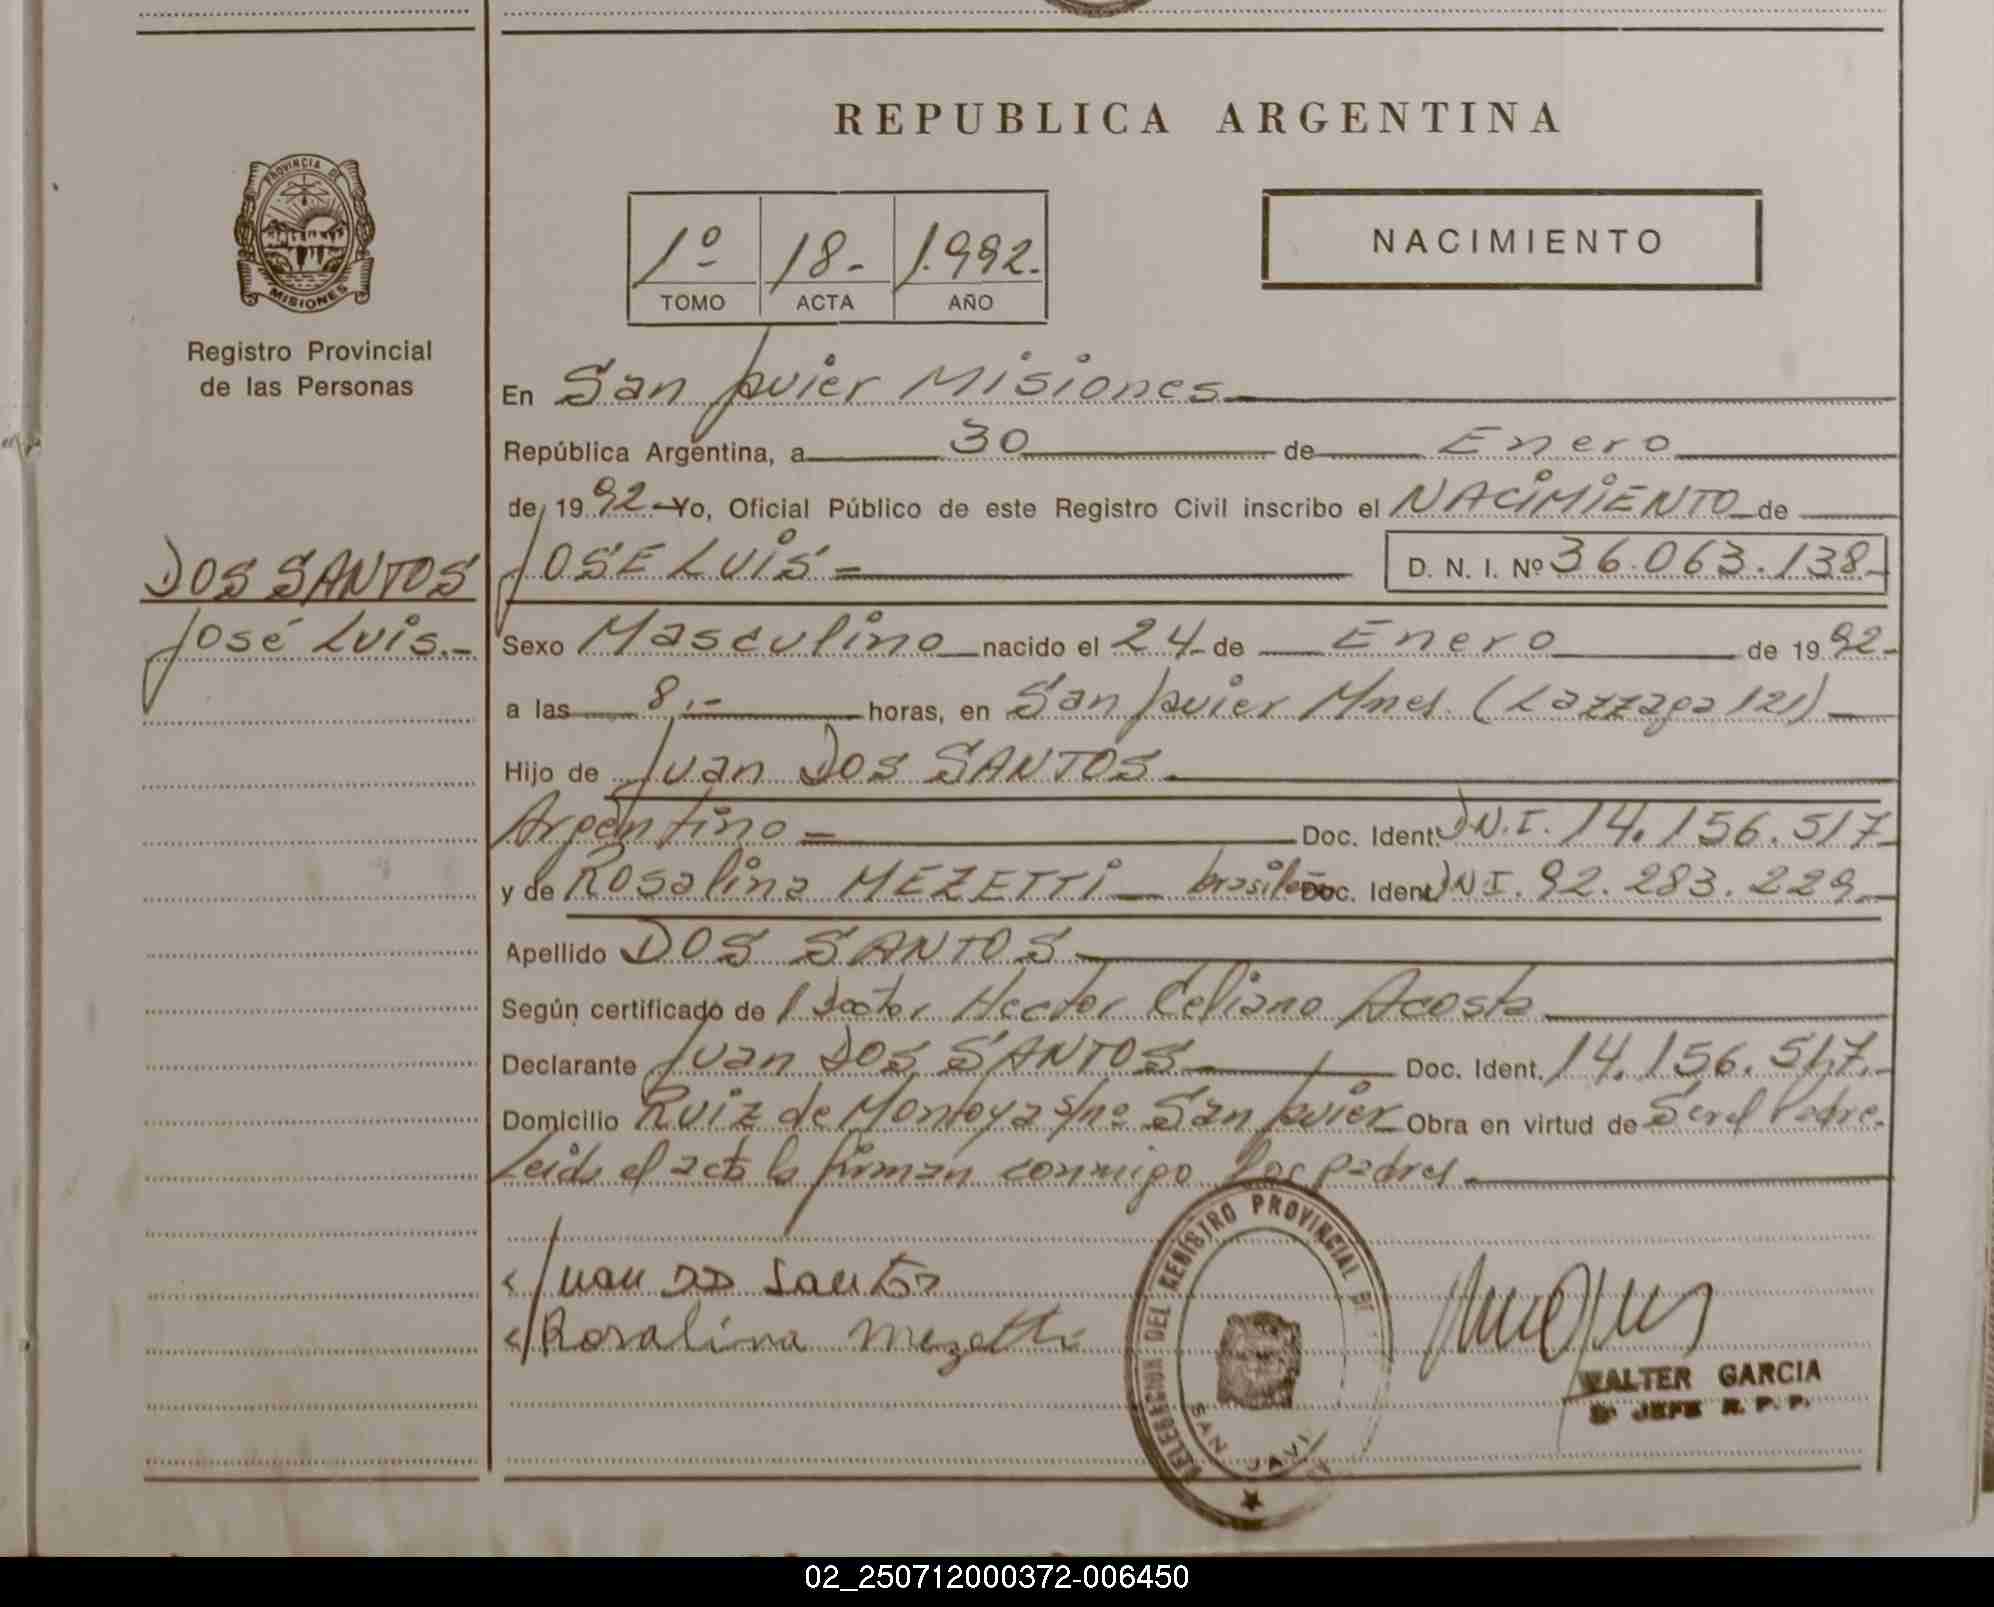 REPUBLICA ARGENTINA
PROVINCIA DE
MISIONES
Registro Provincial
de las Personas
DOS SANTOS
José Luis.-
1º 18- 1.992.-
TOMO ACTA AÑO
NACIMIENTO
En San Javier Misiones
República Argentina, a 30 de Enero
de 1992- Yo, Oficial Público de este Registro Civil inscribo el NACIMIENTO de
JOSE LUIS= D. N. I. Nº 36.063.138-
Sexo Masculino nacido el 24- de Enero de 1992-
a las 8.- horas, en San Javier Mnes. (Lazzaga 121)
Hijo de Juan DOS SANTOS
Argentino= Doc. Ident. D.N.I. 14.156.517-
y de Rosalina MEZETTI- brasileña Doc. Ident. DNI. 92.283.229.-
Apellido DOS SANTOS
Según certificado de l Doctor Hector Celiano Acosta
Declarante Juan DOS SANTOS Doc. Ident. 14.156.517.-
Domicilio Ruiz de Montoya s/nº San Javier Obra en virtud de Ser el Padre.
Leida el acta la firman conmigo los padres
Juan DD Santos
Rosalina Mezetti
DELEGACION DEL REGISTRO PROVINCIAL DE
SAN JAVI
WALTER GARCIA
JEFE R. P. P.
02_250712000372-006450